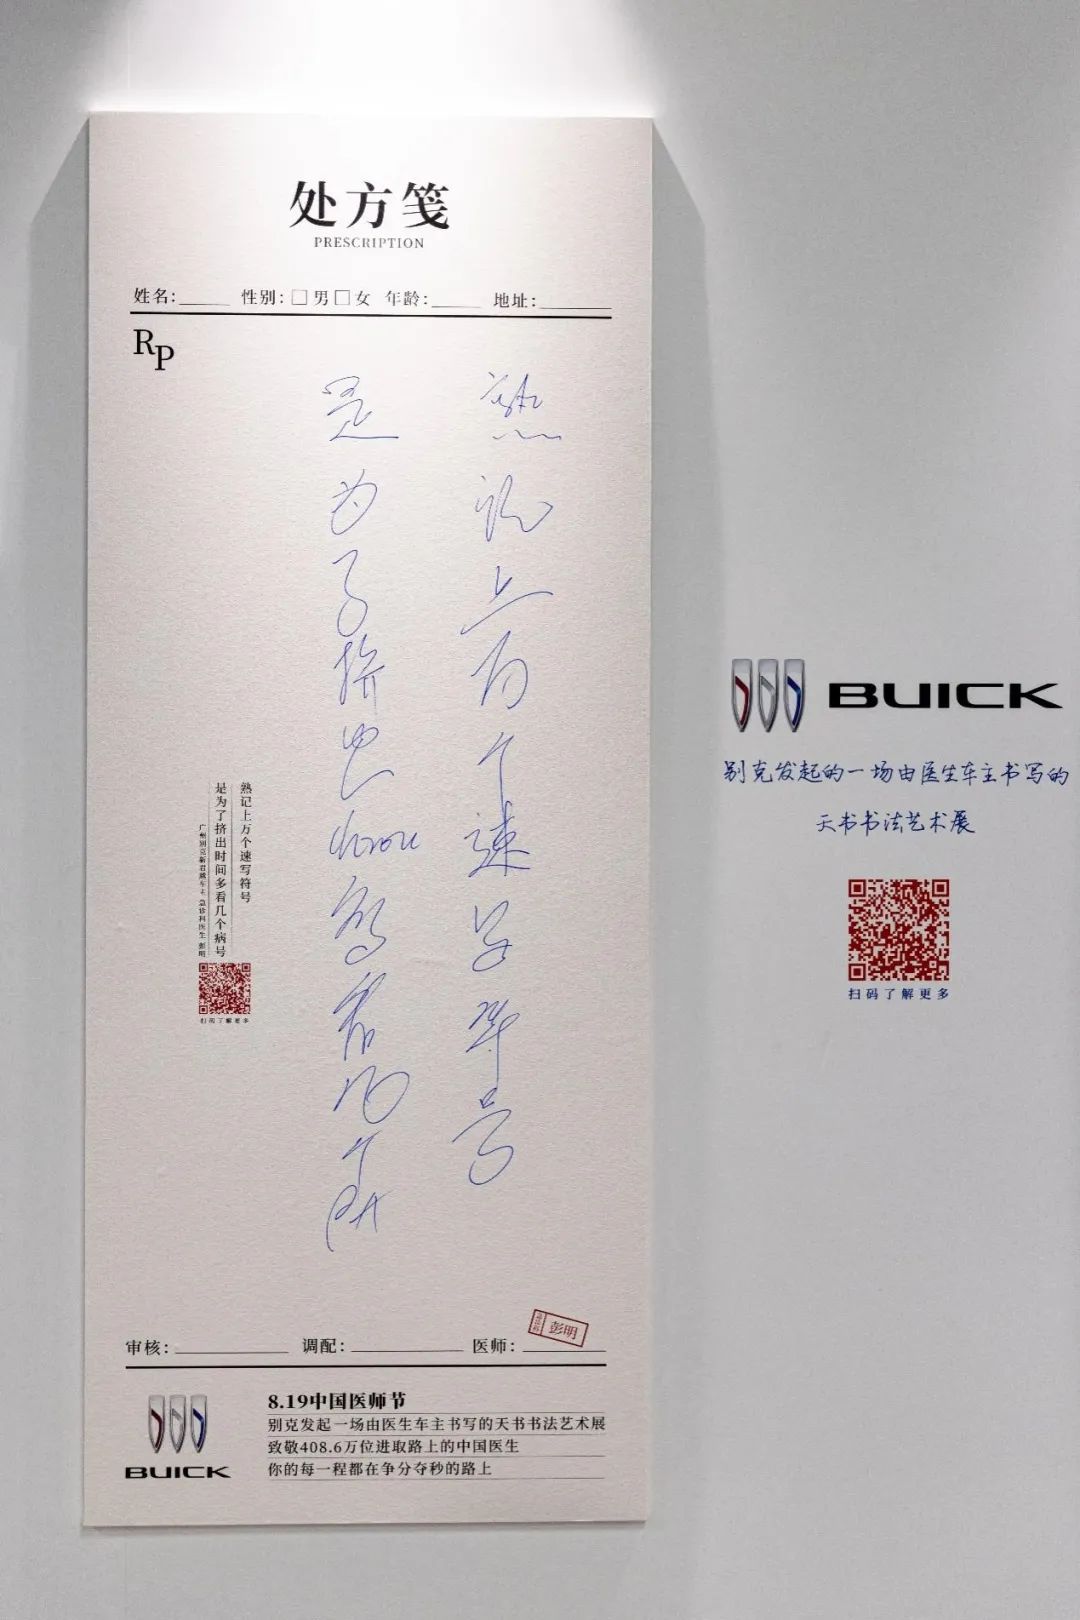 处方笺
PRESCRIPTION
姓名:____ 性别:□男□女 年龄:____ 地址:____
RP
熟记上万个速写符号
是为了挤出时间多看几个病号
熟记上万个速写符号
是为了挤出时间多看几个病号
广州别克新君威车主 急诊科医生 彭明
扫码了解更多
审核:____ 调配:____ 医师:____
彭明
BUICK
8.19中国医师节
别克发起一场由医生车主书写的天书书法艺术展
致敬408.6万位进取路上的中国医生
你的每一程都在争分夺秒的路上
BUICK
别克发起的一场由医生车主书写的
天书书法艺术展
扫码了解更多